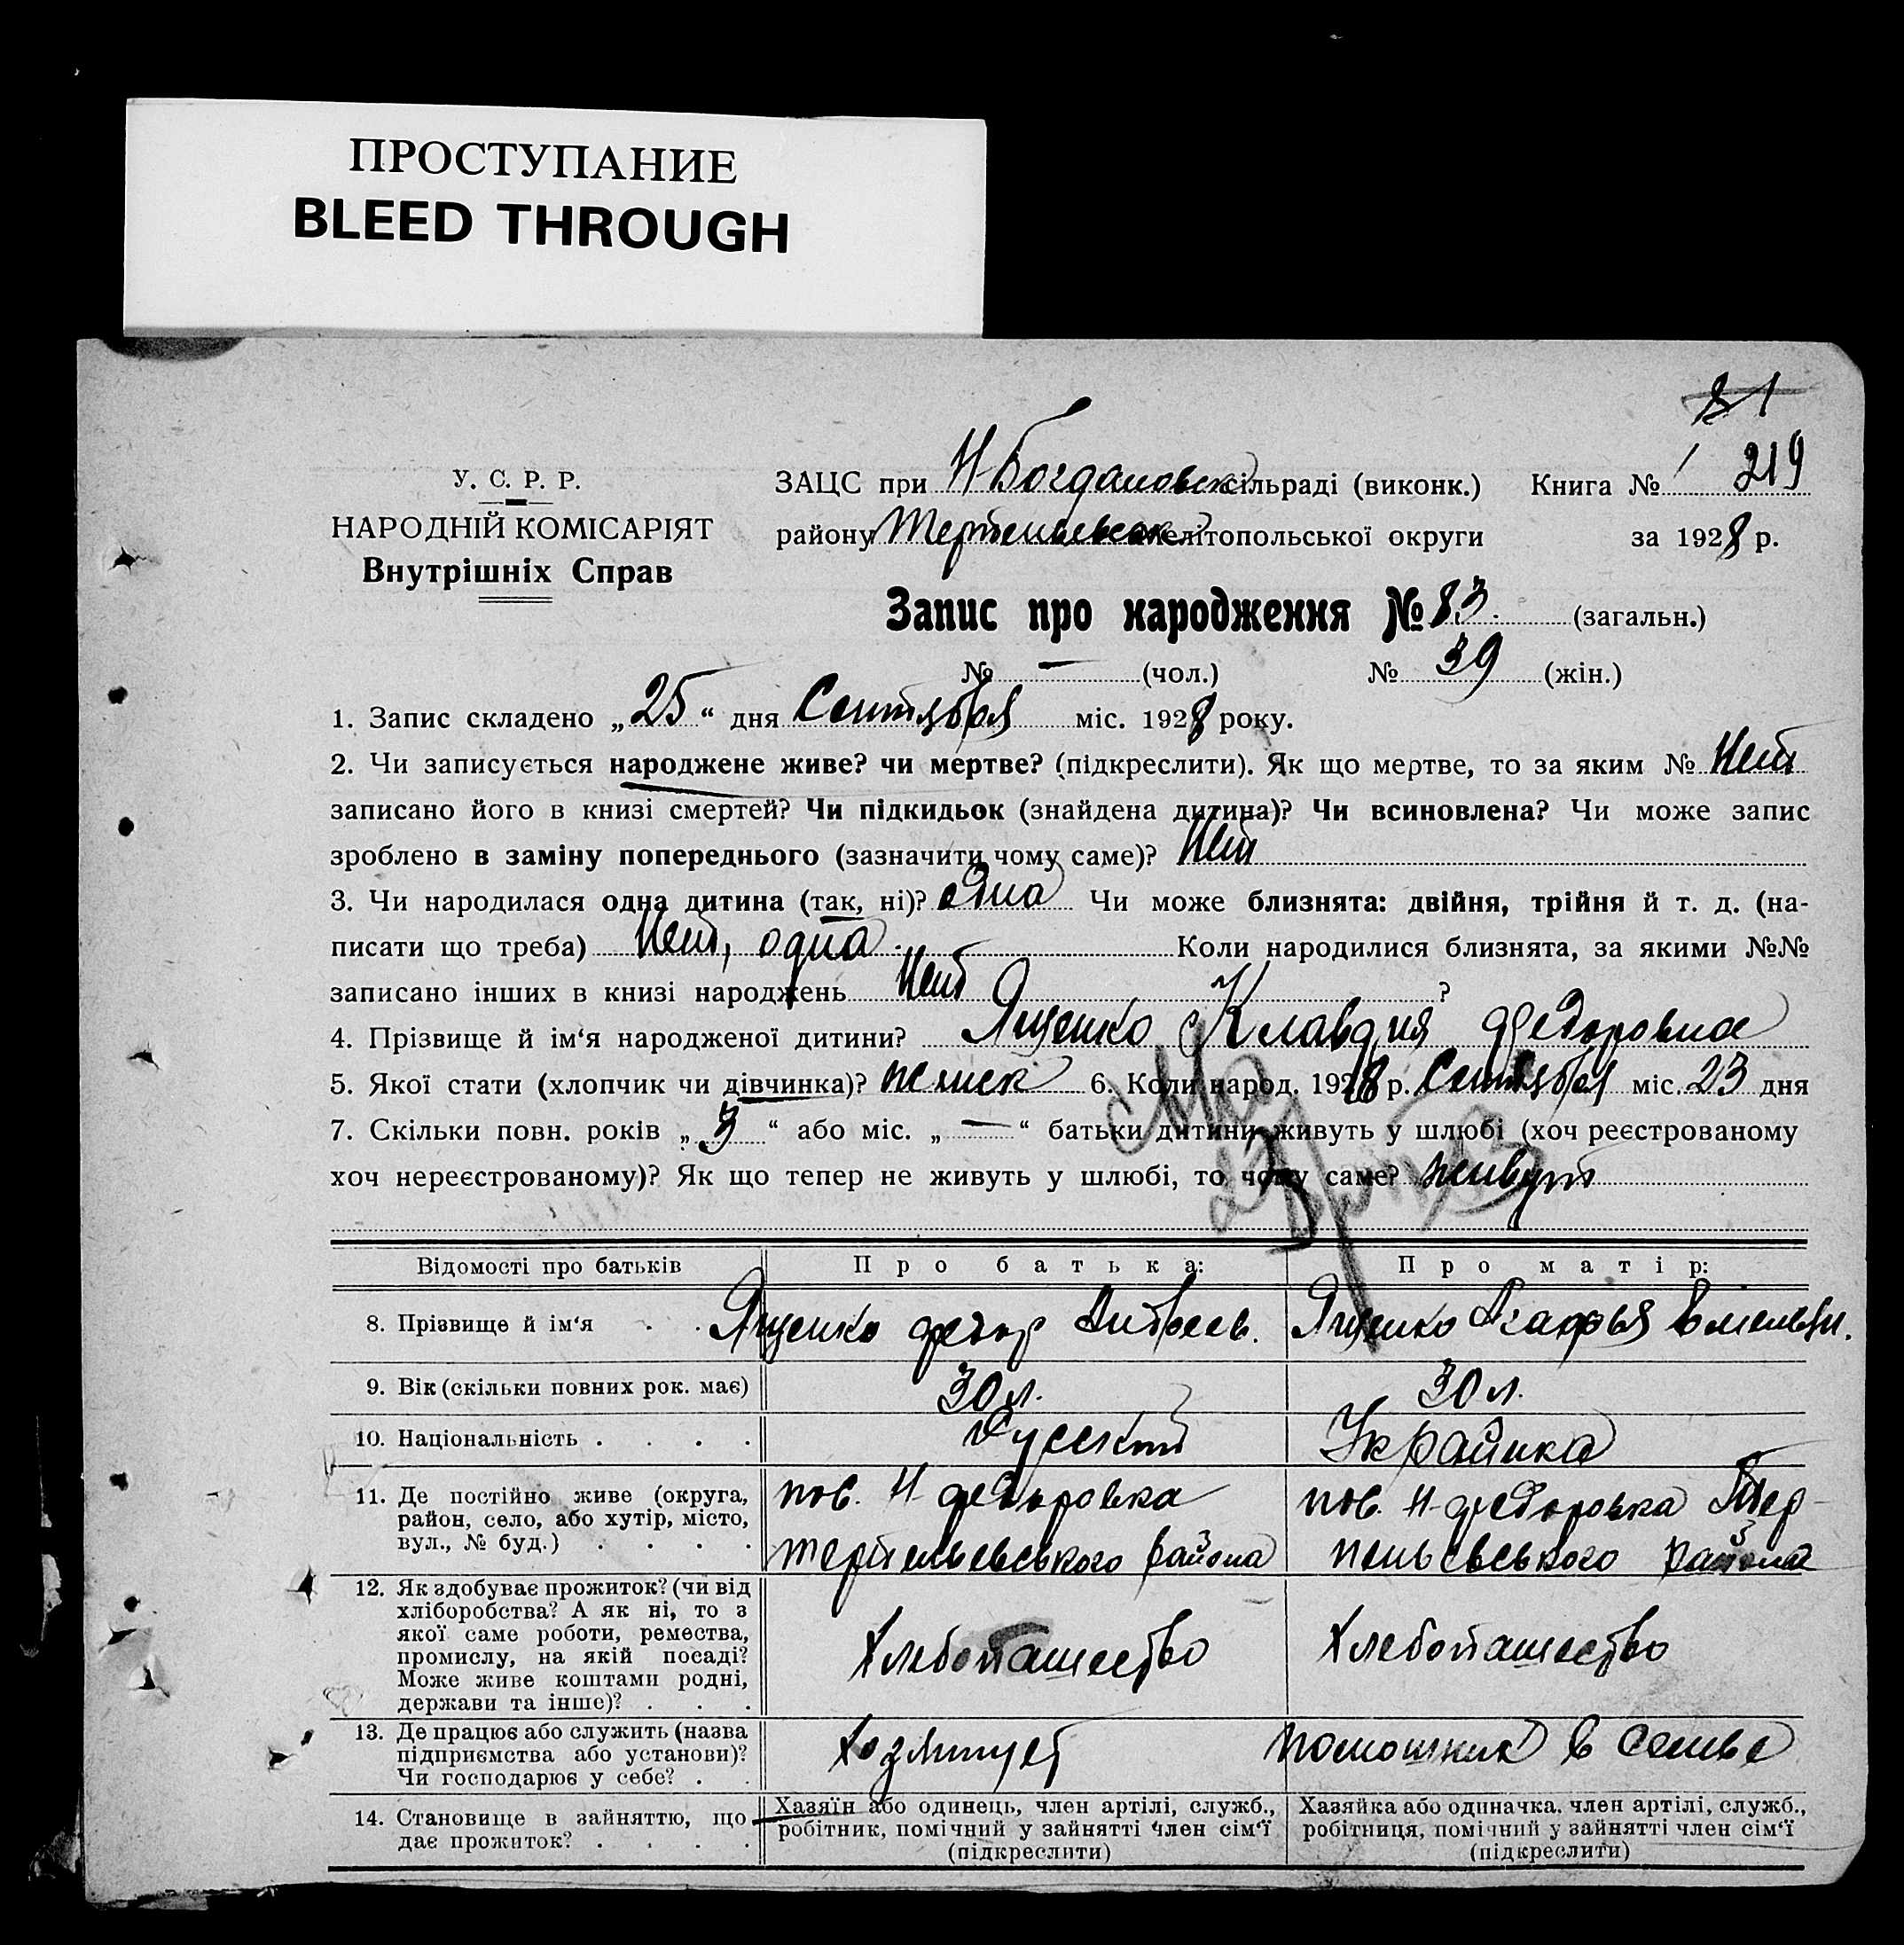 ПРОСТУПАНИЕ
BLEED THROUGH
81
У. С. Р. Р.
НАРОДНІЙ КОМІСАРІЯТ
Внутрішніх Справ
ЗАЦС при Н-Богдановск сільраді (виконк.) Книга № 1 219
району Терпеньевськ Мелітопольської округи за 1928 р.
Запис про народження № 83. (загальн.)
№ — (чол.) № 39 (жін.)
1. Запис складено „25“ дня Сентября міс. 1928 року.
2. Чи записується народжене живе? чи мертве? (підкреслити). Як що мертве, то за яким № Нет
записано його в книзі смертей? Чи підкидьок (знайдена дитина)? Чи всиновлена? Чи може запис
зроблено в заміну попереднього (зазначити чому саме)? Нет
3. Чи народилася одна дитина (так, ні)? одна Чи може близнята: двійня, трійня й т. д. (на-
писати що треба) Нет, одна. Коли народилися близнята, за якими №№
записано інших в книзі народжень Нет ?
4. Прізвище й ім‘я народженої дитини? Ященко Клавдия Федоровна
5. Якої стати (хлопчик чи дівчинка)? женск 6. Коли народ. 1928 р. Сентября міс. 23 дня
7. Скільки повн. років „3“ або міс. „—“ батьки дитини живуть у шлюбі (хоч реєстрованому
хоч нереєстрованому)? Як що тепер не живуть у шлюбі, то чому саме? живут
Відомості про батьків Про батька: Про матір:
8. Прізвище й ім‘я . . Ященко Федор Ященко Агафья Емельян.
9. Вік (скільки повних рок. має) 30 л. 30 л.
10. Національність . . . . Русский Українка
11. Де постійно живе (округа,
район, село, або хутір, місто,
вул., № буд.) . . . .
пов. Н-Федоровка
Терпеньевського района
пов. Н-Федоровка Тер-
пеньевського района
12. Як здобуває прожиток? (чи від
хліборобства? А як ні, то з
якої саме роботи, ремества,
промислу, на якій посаді?
Може живе коштами родні,
держави та інше)? . . .
Хлебопашество Хлебопашество
13. Де працює або служить (назва
підприємства або установи)?
Чи господарює у себе? . .
Хозяинует помошник в семье
14. Становище в зайняттю, що
дає прожиток? . . . .
Хазяїн або одинець, член артілі, служб.,
робітник, помічний у зайнятті член сім‘ї
(підкреслити)
Хазяйка або одиначка, член артілі, служб.,
робітниця, помічний у зайнятті член сім‘ї
(підкреслити)